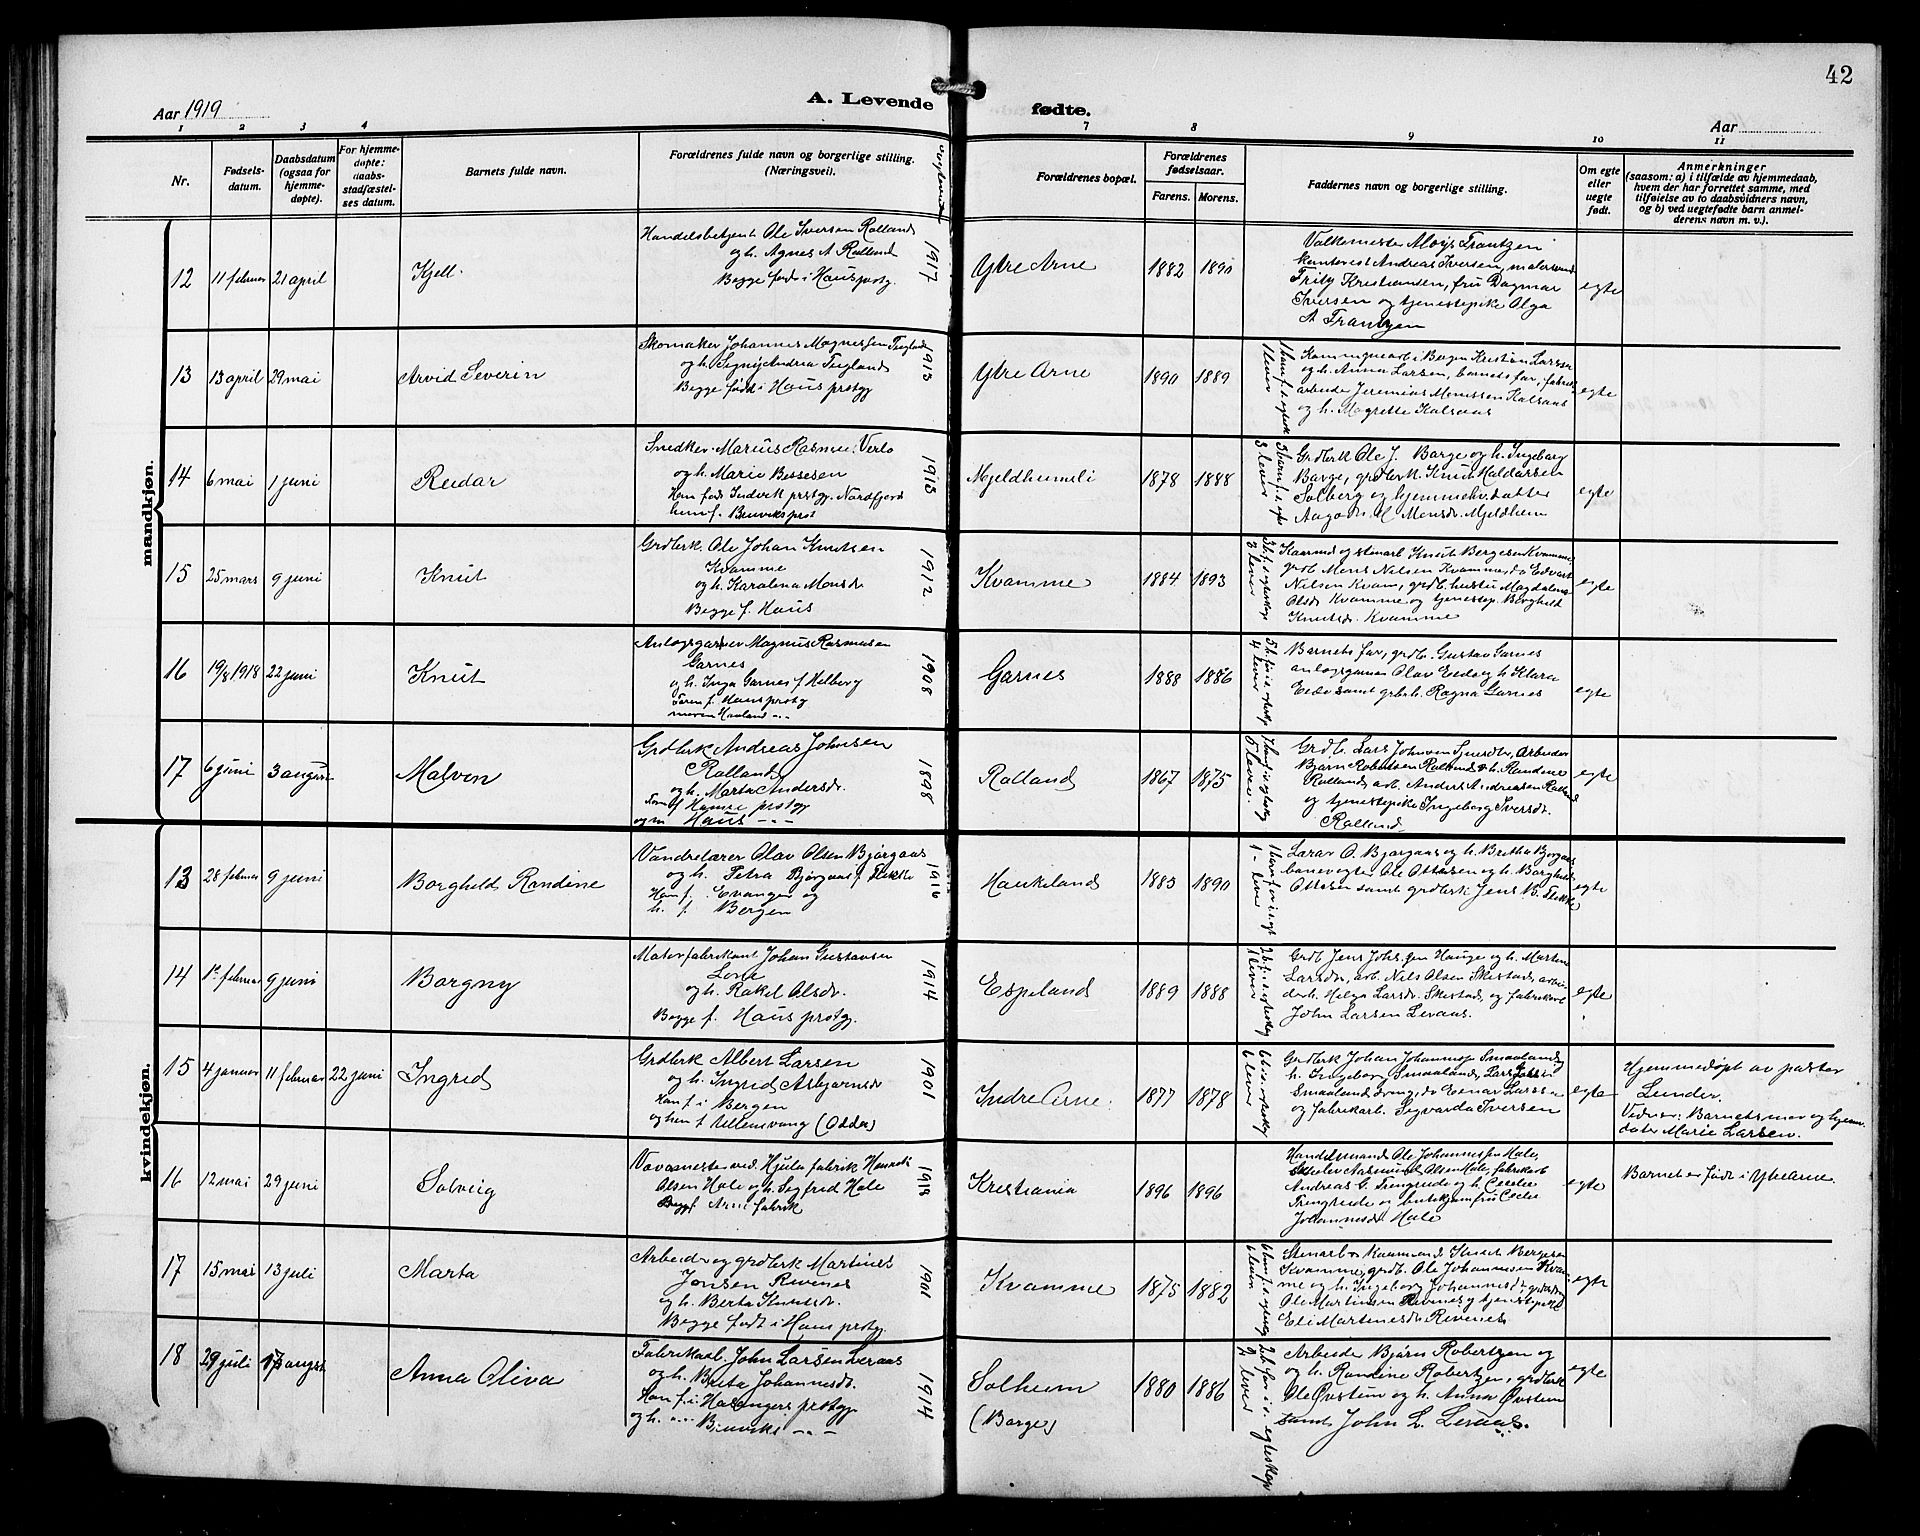 42
Aar 1919
A. Levende
fødte.
Aar
1 2 3 4
7 8 9 10 11
Nr.
Fødsels-
datum.
Daabsdatum
(ogsaa for
hjemme-
døpte).
For hjemme-
døpte:
daabs-
stadfæstel-
ses datum.
Barnets fulde navn.
Forældrenes fulde navn og borgerlige stilling.
(Næringsvei.)
Forældrenes bopæl.
Forældrenes
fødselsaar.
Farens. Morens.
Faddernes navn og borgerlige stilling.
Om egte
eller
uegte
født.
Anmerkninger
(saasom: a) i tilfælde av hjemmedaab,
hvem der har forrettet samme, med
tilføielse av to daabsvidners navn,
og b) ved uegtefødte barn anmel-
derens navn m. v.).
mandkjøn.
12 11 februar 21 april Kjell.
Handelsbetjent Ole Iversen Rolland
og h. Agnes A Rolland
Begge født i Haus prstg.
1917
Ytre Arne 1882 1890
Valkemester Aloys Frantzen
kontorist Andreas Iversen, malersvend
Fritz Kristiansen, fru Dagmar
Iversen og tjenestepike Olga
A Frantzen
egte
13 13 april 29 mai Arvid Severin
Skomaker Johannes Magnessen Teigland
og h. Signy Andrea Teigland
Begge født i Haus prstg
1913
Ytre Arne 1890 1889
1 barn f. i. egtesk
1 lever
i Bergen Kristian Larsen
og h. Anna Larsen, barnets far, fabrik
arbeider Jeremias Monssen Kalsaas
og h. Magrette Kalsaas
egte
14 6 mai 1 juni Reidar
Snedker Marius Rasmus. Verlo
og h. Marie Bessesen
Han født Indvik prstg. Nordfjord
hun f. Bruviks prst
1913
Mjeldheimsli 1878 1888
3 barn f. i. egte
3 lever
Grdbrk Ole J. Borge og h. Ingeborg
Borge, grdbrk Knut Haldorsen
Solberg og hjemmehv. datter
Aagodr. M Monsdr. Mjeldheim
egte
15 25 mars 9 juni Knut
Grdbrk. Ole Johan Knutsen
Kvamme
og h. Karolina Monsdr
Begge f. Haus
1912.
Kvamme 1884 1893
3 b. f. i egteskap
3 lever
Kaarmd og stenarb Knut Bergesen Kvamme,
grdb Mons Nilsen Kvamme, do Edvart
Nilsen Kvam, grdb. hustru Magdalena
Olsdr Kvamme og tjenestep. Borghild
Knutsdr. Kvamme
egte
16 19/8 1918 22 juni Knut
Anlægsgartner Magnus Rasmusen
Garnes
og h. Inga Garnes f Helberg
Faren f. Haus prstg
moren Hauland -"-
1908
Garnes 1888 1886
5 b. før i. egtesk
4 lever
Barnets far, grdb. Gustav Garnes
anlægsgartner Olav Eide og h Klara
Eide samt grb. h. Ragna Garnes
egte
17 6 juni 3 august Malvin
Grdbrk Andreas Johnsen
Rolland
og h. Marta Andersdr.
Faren f Hamre prstg
og m Haus -"-
1898
Rolland 1867 1875
7 barn f. i egtesk
5 lever.
Grdb. Lars Johnsen, Arbeider
Bjørn Robertsen Rolland & h. Randine
Rolland, arb. Anders Andreasen Rolland
og tjenestepike Ingeborg Iversdr.
Rolland
egte
kvindekjøn.
13 28 februar 9 juni Borghild Randine
Vandrelærer Olav Olsen Bjørgaas
og h. Petra Bjørgaas f. Flekke
Han f. Evanger og
h. f. Bergen
1916
Haukeland 1885 1890
1 barn før i. egt
1 - lever
Lærer O. Bjørgaas og h. Bertha Bjørgaas
banevogter Ole Ottesen og h. Borghild
Ottesen samt grdbrk. Jens N. Flekke
egte
14 1ste februar 9 juni Borgny
Motorfabrikant Johan Gustavsen
Lone
og h. Rakel Olsdr.
Begge f. Haus prstg.
1914
Espeland 1889 1888
2 b. f. i. egteskap
1 lever
Grdb Jens Johs.sen Hauge og h. Martine
Larsdr, arb. Nils Olsen Skistad, arbei
derh. Helga Larsdr. Skistad, og fabrikarb
John Larsen Leraas.
egte
15 4 januar 11 februar 22 juni Ingrid
Grdbrk Albert Larsen
og h. Ingrid Asbjørnsdr
Han f. i Bergen
og hun f Ullensvang (Odda)
1901
Indre Arne. 1877 1878
6 b i. egteskap
6 lever
Grdbrk Johan Johannessen Smaaland
h. Ingeborg Smaaland, Lars Larsen
Smaaland, do Einar Larsen
og fabrikarb. Sigvarda Iversen
egte
Hjemmedøpt av pastor
Lunder.
Vidner: Barnets mor og hjem.
dater Marie Larsen.
16 12 mai 29 juni Solveig
Vævemester ved. Hjula fabrik Henrik
Olsen Hole og h. Sigfrid Hole
Begge f. Arne fabrik
1918
Kristiania 1896 1896
Handelsmand Ole Johannessen Hole,
Rasmus Olsen Hole, fabrikarb
Andreas G. Trengereide og h. Cecilie
Trengereide og butikjomfru Cecilie
Johannesdr. Hole
egte
Barnet er født i Ytre Arne.
17 15 mai 13 juli Marta
Arbeider og grdbrk Martines
Jonsen Revenes
og h. Berta Knutsdr.
Begge født i Haus prstg.
1901
Kvamme 1875 1882
6 barn f. i. egtesk
6 lever
Stenarb og kaarmand. Knut Bergesen
Kvamme, grdb. Ole Johannessen Kvam
me og h. Ingeborg Johannesdr, grdarb
Ole Martinsen Revenes og tjenestepike
Eli Martinesdr Revenes
egte
18 29 juli 17 august Anna Oliva
Fabrikarb. John Larsen Leraas
og h. Brita Johannesdr.
Han f. i Hosangers prstg
og h. -"- Bruviks -"-
1914
Solheim
(Borge) 1880 1886
2 b. før i. egteskap
2 lever
Arbeider Bjørn Robertsen og
og h. Randine Robertsen, grdbrk
Ole Øvstun og h. Anna Øvstun
samt John L. Leraas.
egte